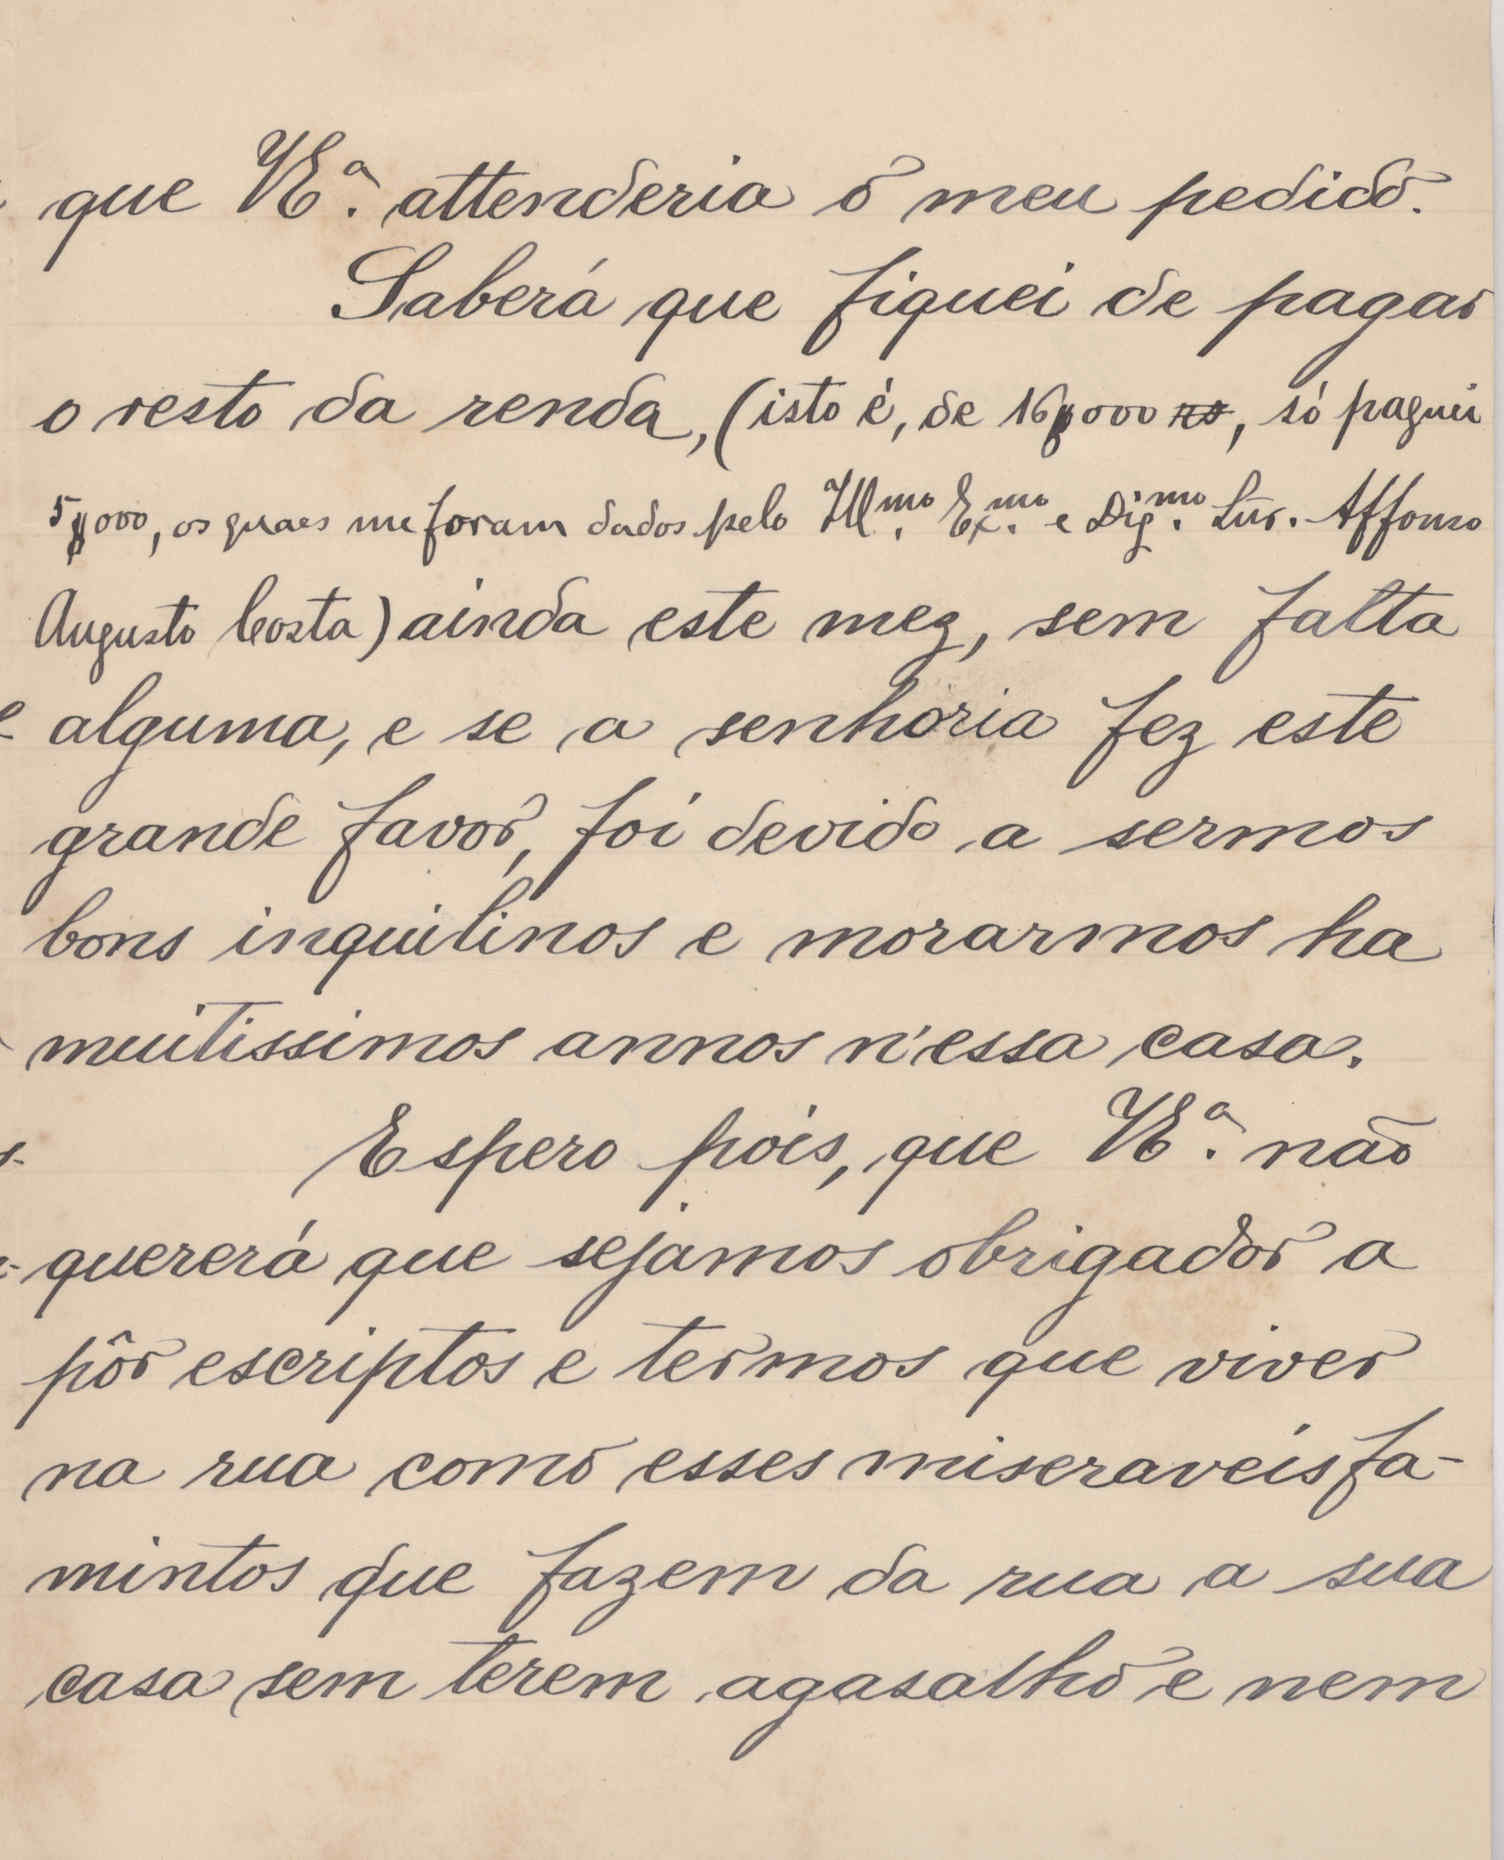 que V.E.ª attenderia o meu pedido.
Saberá que fiquei de pagar
o resto da renda, (isto é, de 16$000 rs, só paguei
5$000, os quaes me foram dados pelo Ill.mo Ex.mo e Dig.mo Snr. Affonso
Augusto Costa) ainda este mez, sem falta
alguma, e se a senhoria fez este
grande favor, foi devido a sermos
bons inquilinos e morarmos ha
muitissimos annos n'essa casa.
Espero pois, que V.E.ª não
quererá que sejamos obrigados a
pôr escriptos e termos que viver
na rua como esses miseraveis fa-
mintos que fazem da rua a sua
casa sem terem agasalho e nem